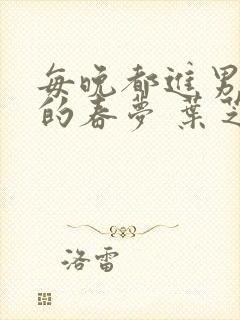 每晚都進男
的春夢 葉
洛雷